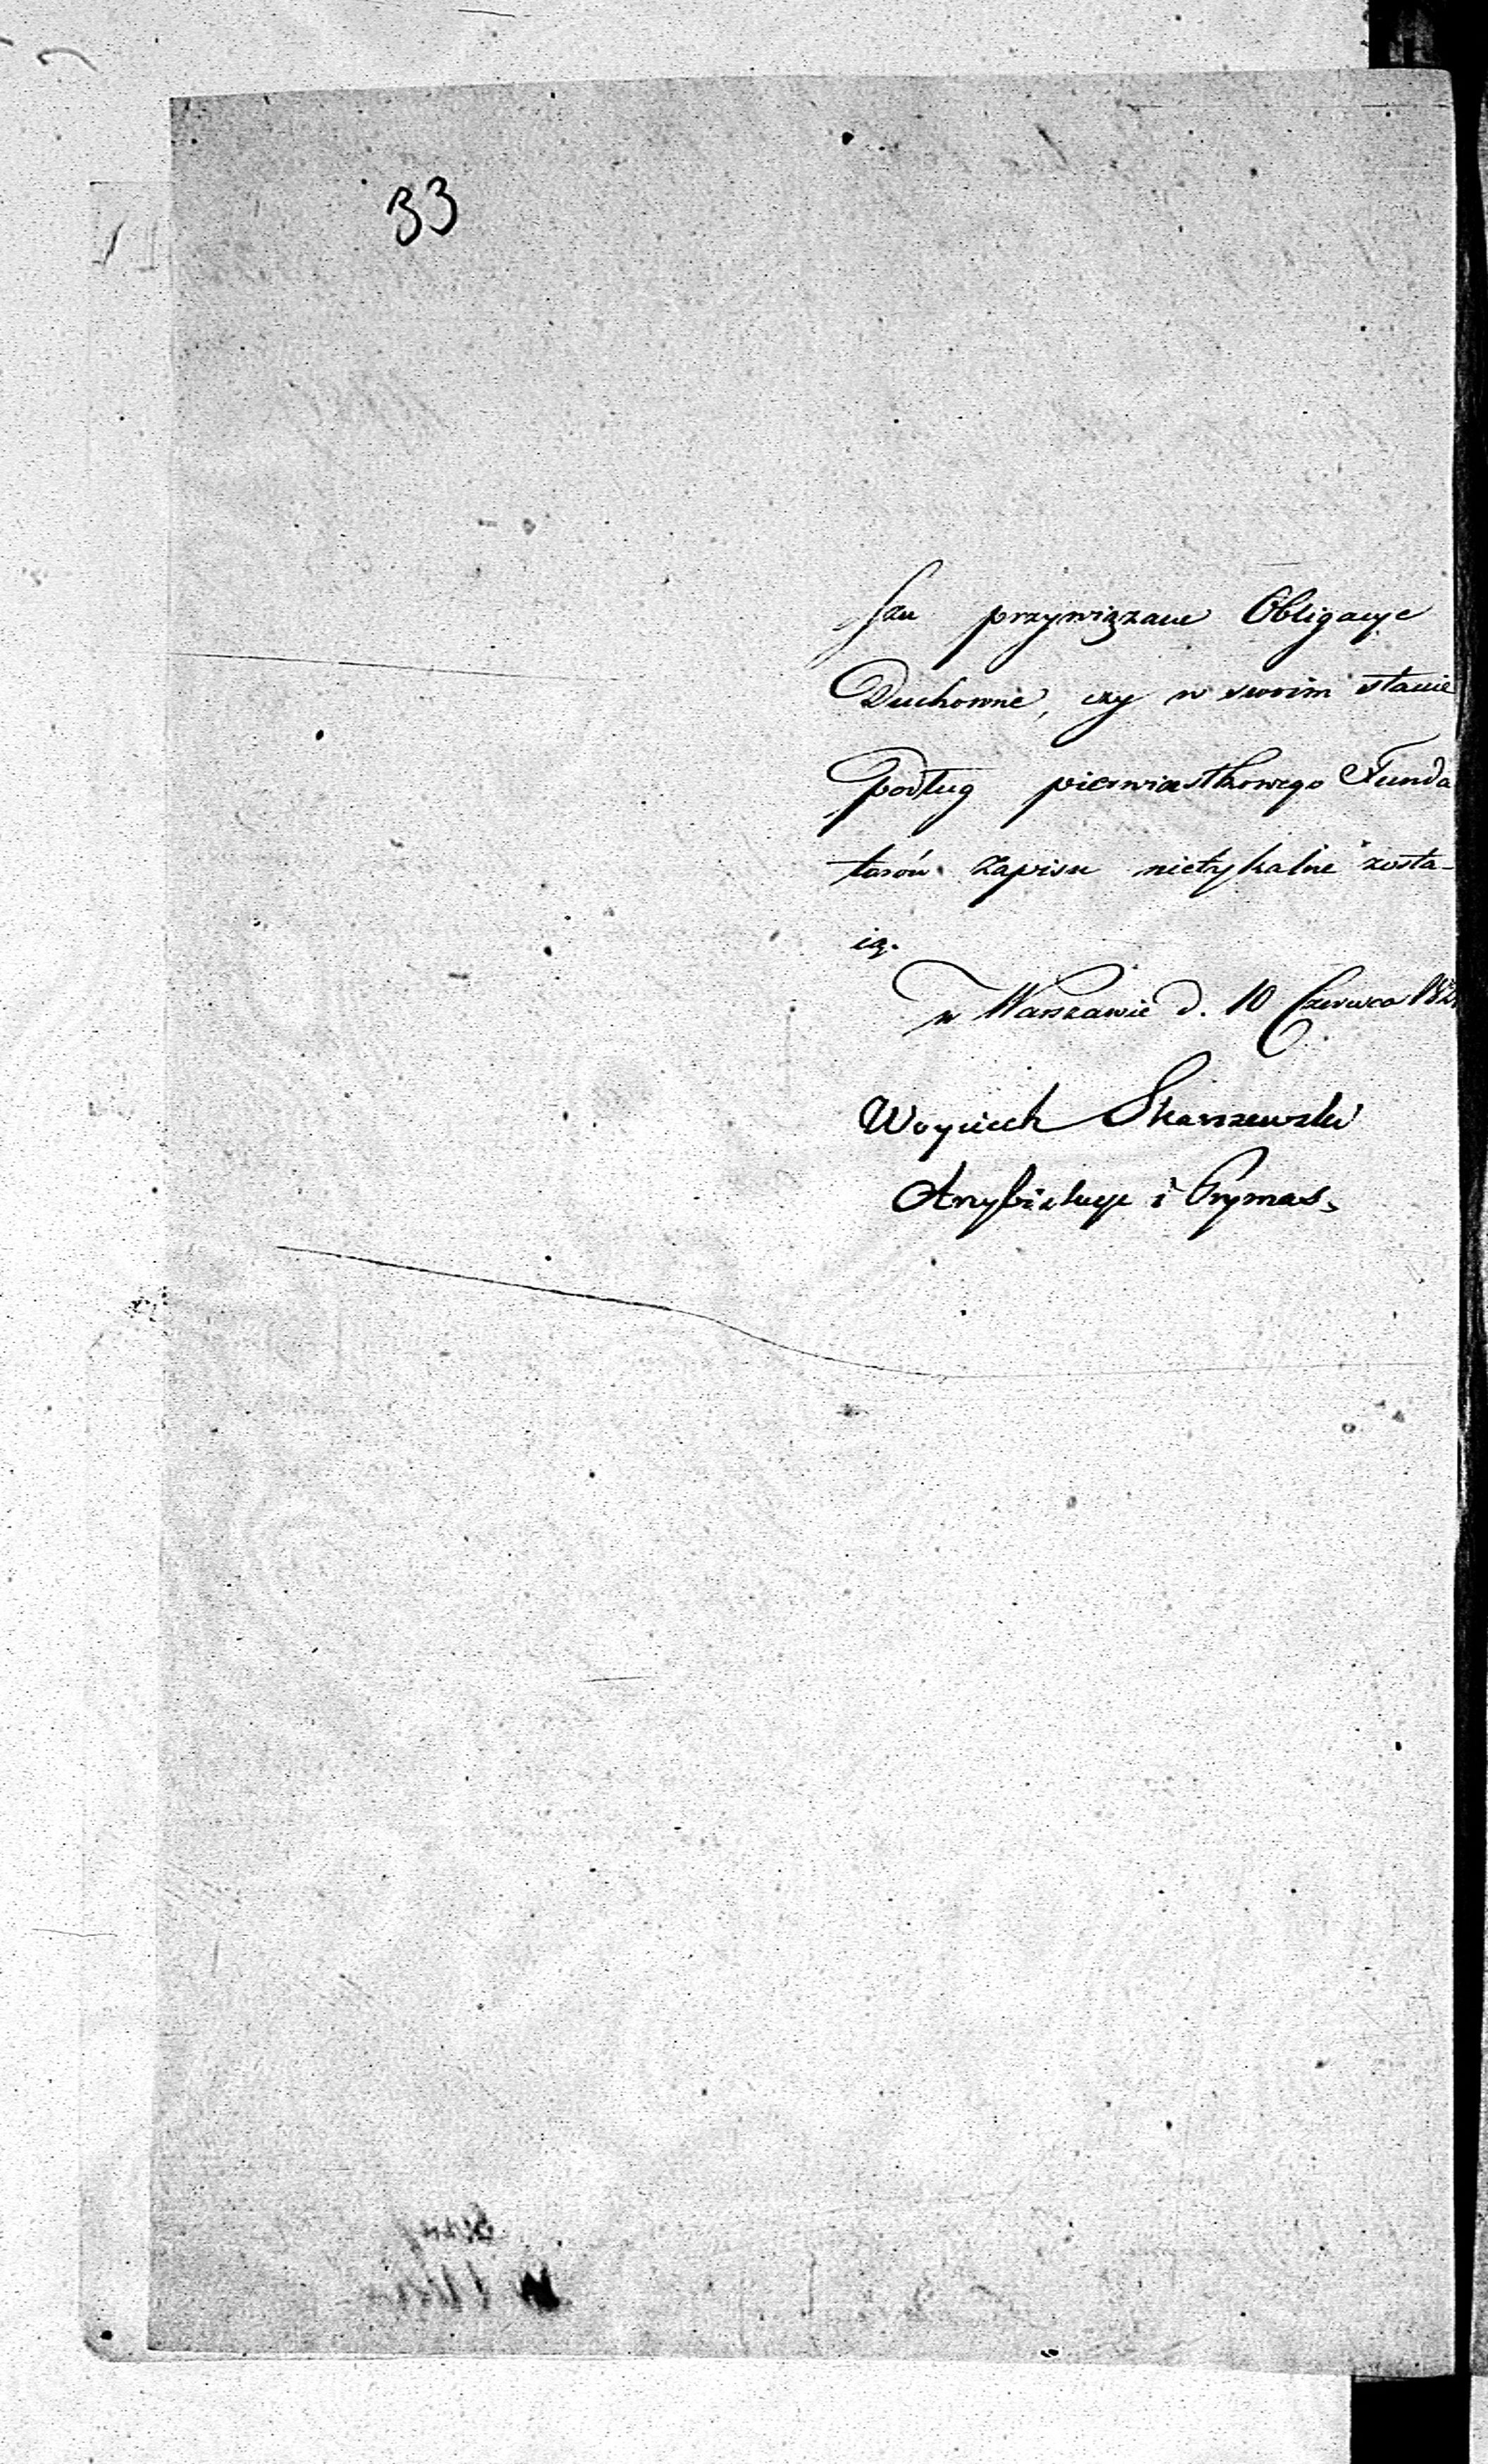 33
szu przywiązane Obligacye
Duchowne, czy w swoim stanie
Podług pierwiastkowego Funda
torów Zapisu nietykalne zosta-
ią.
w Warszawie d. 10 Czerwca 182
Woyciech Skarszewski
Arcybiskup i Prymas.